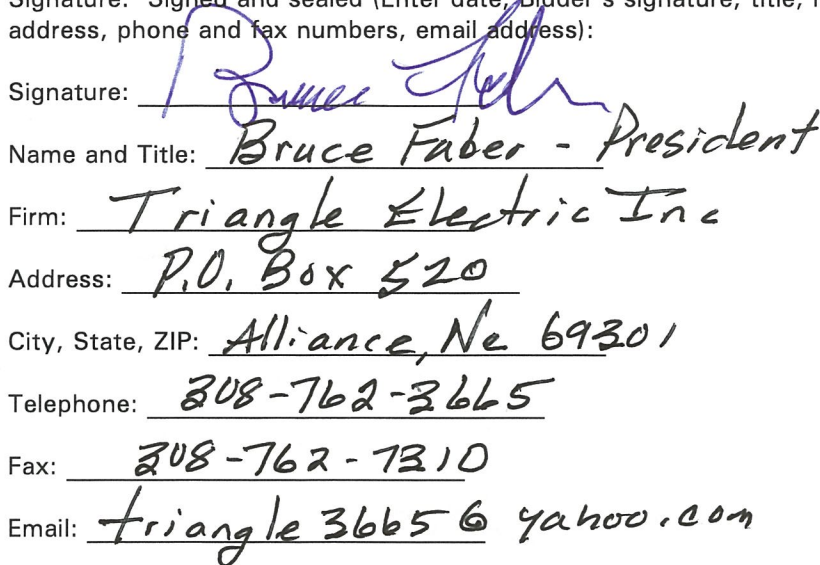 Signature: Signed and sealed (Enter date, Bidder's signature, title,
address, phone and fax numbers, email address):
Signature: Bruce Faber
Name and Title: Bruce Faber - President
Firm: Triangle Electric Inc
Address: P.O. Box 520
City, State, ZIP: Alliance, Ne 69301
Telephone: 308-762-3665
Fax: 308-762-7310
Email: triangle3665@yahoo.com